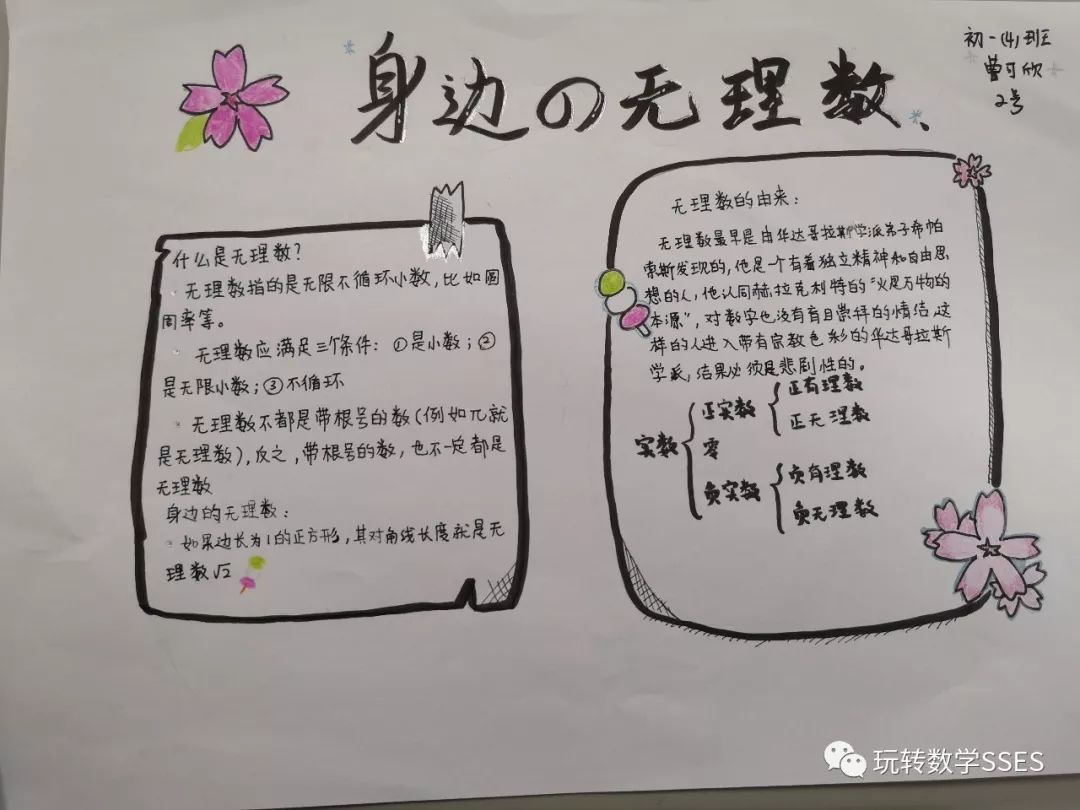 身边の无理数
初一(4)班
曾可欣
2号
什么是无理数?
·无理数指的是无限不循环小数,比如圆
周率等。
·无理数应满足三个条件:①是小数;②
是无限小数;③不循环
·无理数不都是带根号的数(例如π就
是无理数),反之,带根号的数,也不一定都是
无理数
身边的无理数:
·如果边长为1的正方形,其对角线长度就是无
理数√2
无理数的由来:
无理数最早是由华达哥拉斯学派弟子希帕
索斯发现的,他是一个有着独立精神和自由思
想的人,他认同赫拉克利特的“火是万物的
本源”,对数字也没有盲目崇拜的情结,这
样的人进入带有宗教色彩的华达哥拉斯
学派,结果必须是悲剧性的。
实数
正实数
正有理数
正无理数
零
负实数
负有理数
负无理数
玩转数学SSES